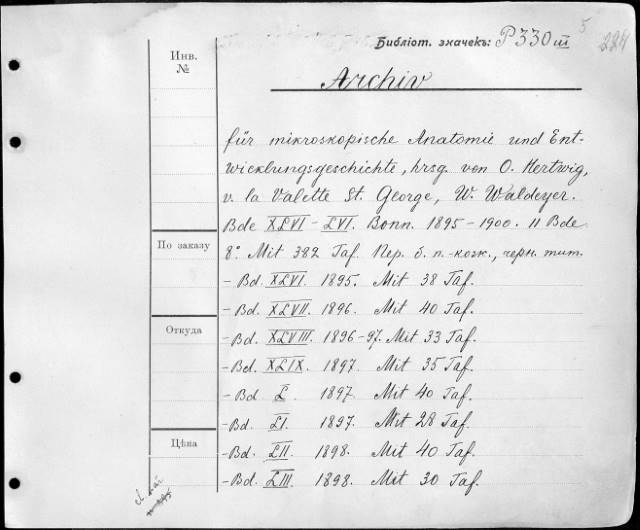 5
Библіот. значекъ: P330 III 224
Инв.
№
Archiv
für mikroskopische Anatomie und Ent-
wicklungsgeschichte, hrsg. von O. Hertwig,
v. la Valette St. George, W. Waldeyer.
Bde XLVI - LVI. Bonn. 1895 - 1900. 11 Bde
По заказу
8° Mit 382 Taf. Пер. б. п.-кож., черн. тит.
- Bd. XLVI. 1895. Mit 38 Taf.
- Bd. XLVII. 1896. Mit 40 Taf.
Откуда
- Bd. XLVIII. 1896-97. Mit 33 Taf.
- Bd. XLIX. 1897. Mit 35 Taf.
- Bd. L. 1897. Mit 40 Taf.
- Bd. LI. 1897. Mit 28 Taf.
Цѣна
- Bd. LII. 1898. Mit 40 Taf.
- Bd. LIII. 1898. Mit 30 Taf.